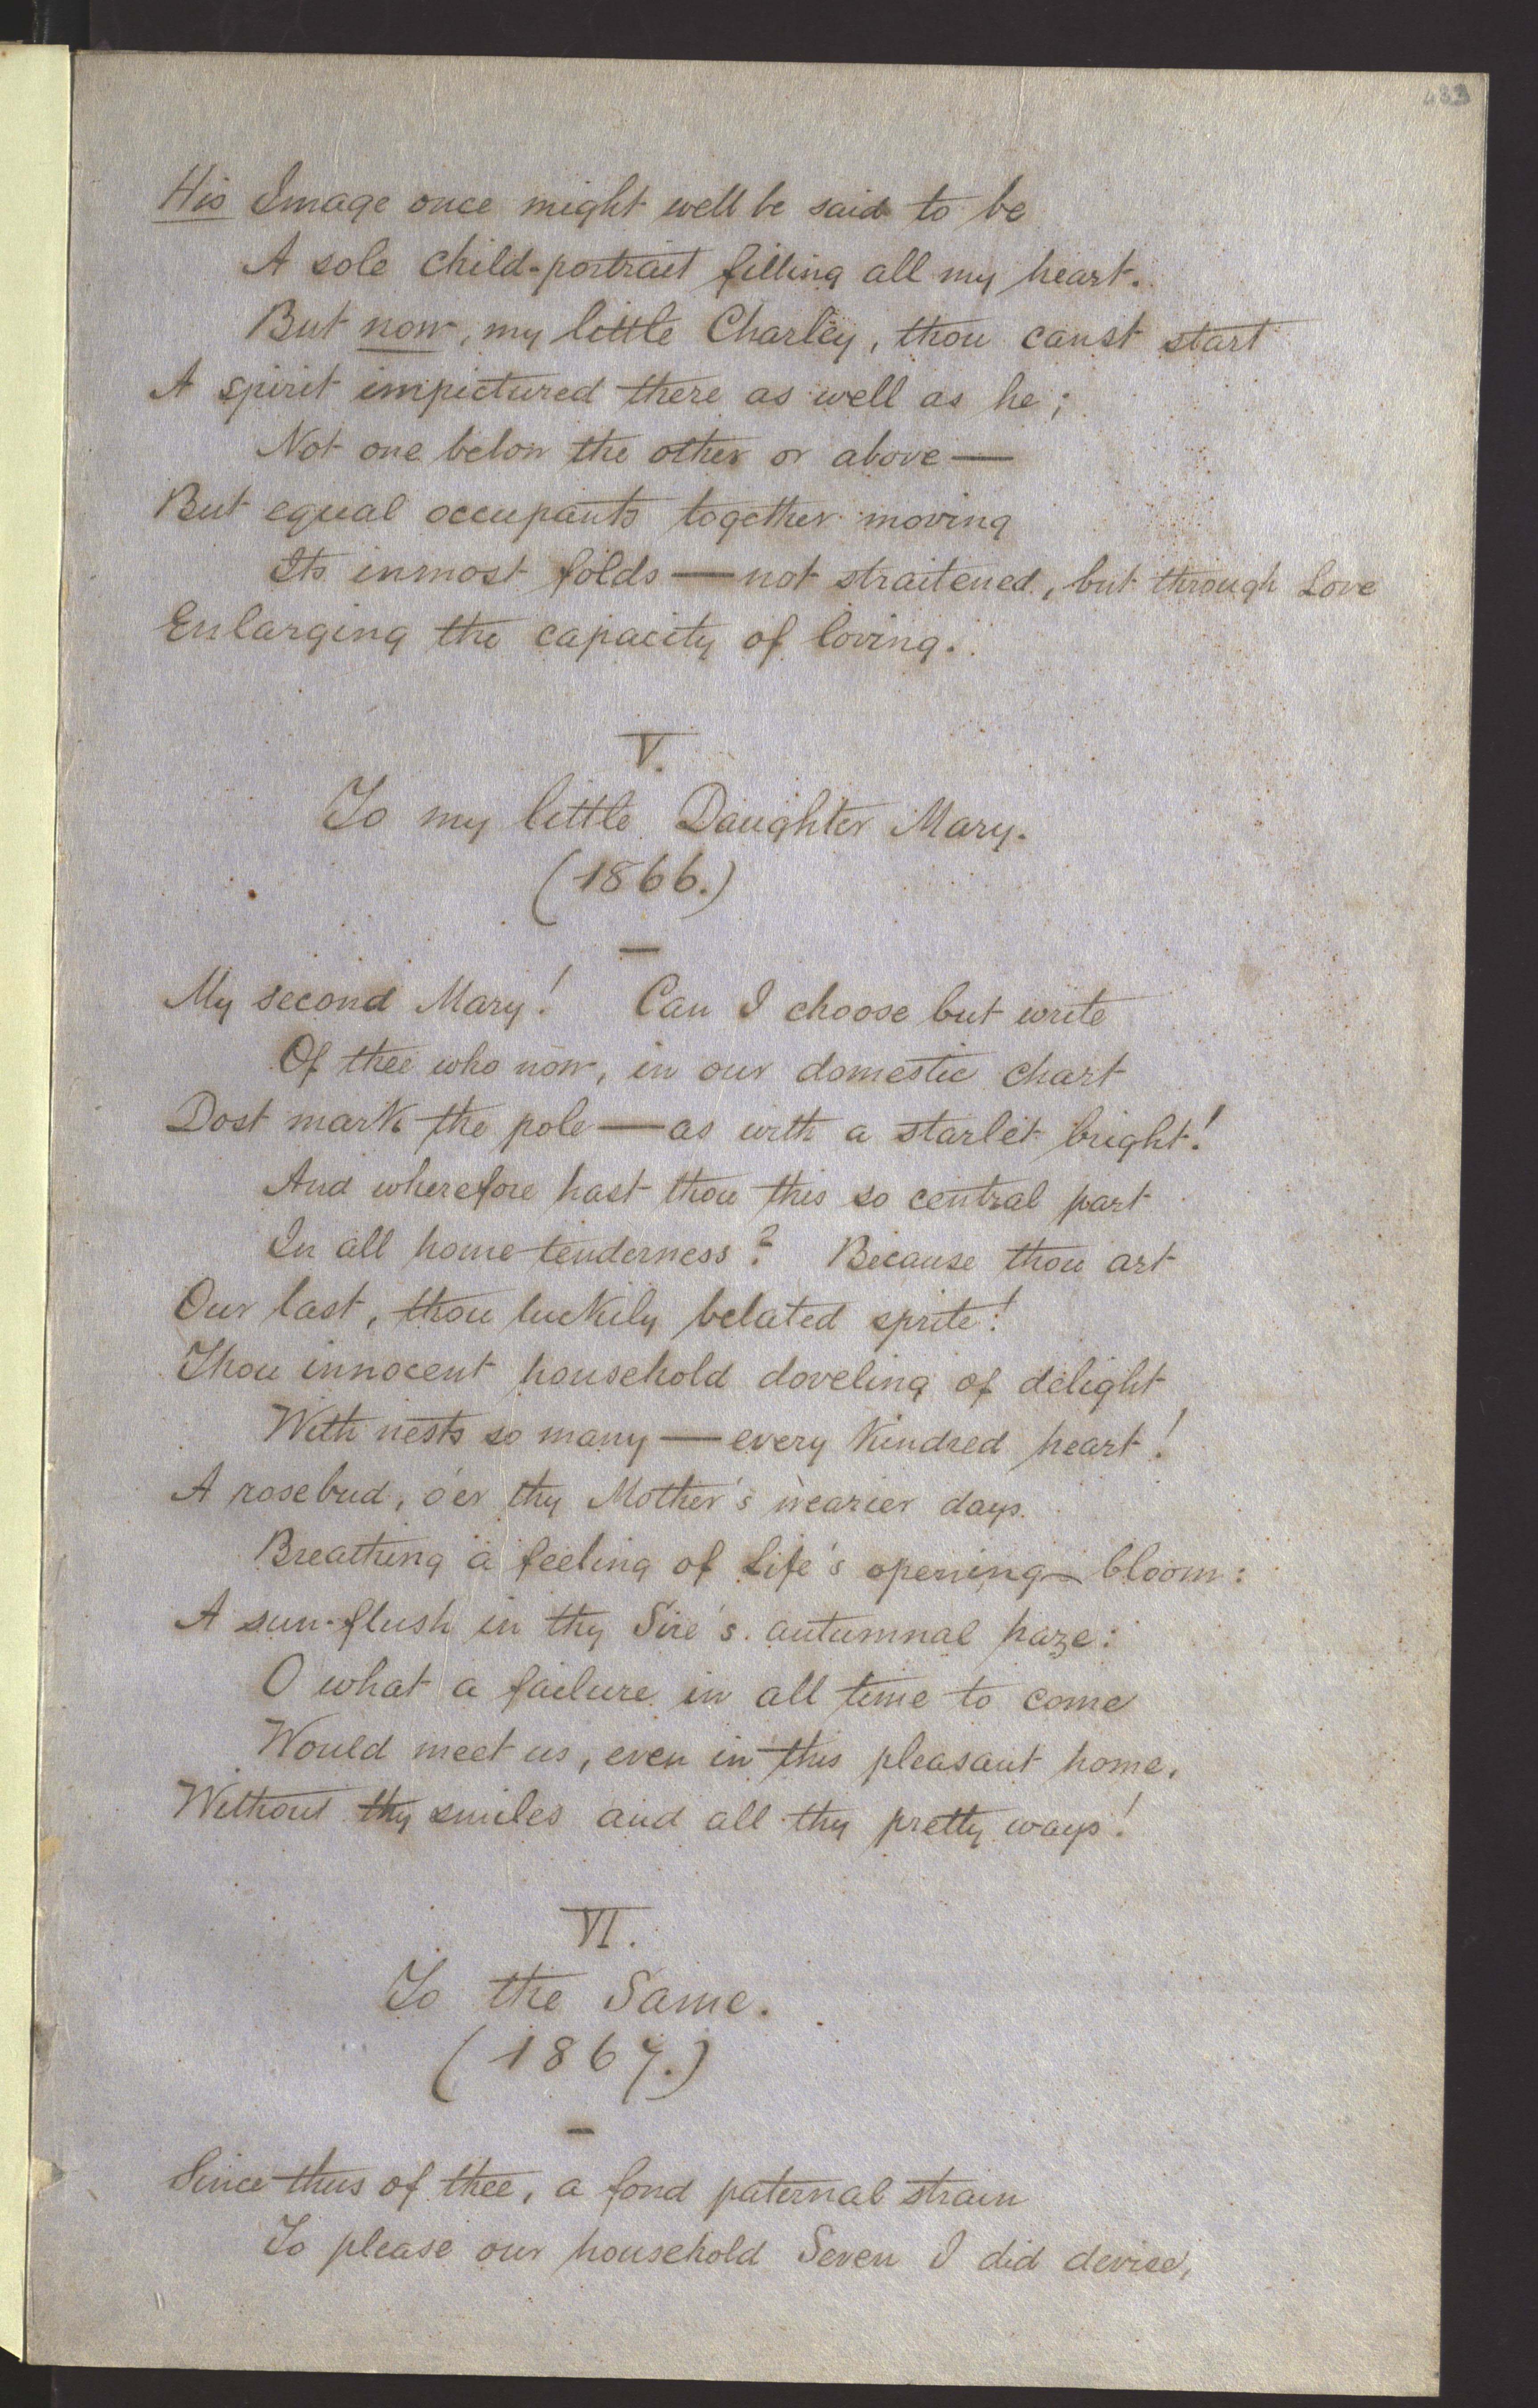 483
His Image once might well be said to be
A sole child-portrait filling all my heart.
But now, my little Charley, thou canst start
A spirit impictured there as well as he;
Not one below the other or above—
But equal occupants together moving
Its inmost folds—not straitened, but through Love
Enlarging the capacity of loving.
V.
To my little Daughter Mary.
(1866.)
—
My second Mary! Can I choose but write
Of thee who now, in our domestic chart
Dost mark the pole—as with a starlet bright!
And wherefore hast thou this so central part
In all home-tenderness? Because thou art
Our last, thou luckily belated sprite!
Thou innocent household doveling of delight
With nests so many—every kindred heart!
A rosebud, o'er thy Mother's wearier days
Breathing a feeling of Life's opening bloom:
A sun-flush in thy Sire's autumnal haze:
O what a failure in all time to come
Would meet us, even in this pleasant home,
Without thy smiles and all thy pretty ways!
VI.
To the Same.
(1867.)
—
Since thus of thee, a fond paternal strain
To please our household Seven I did devise,